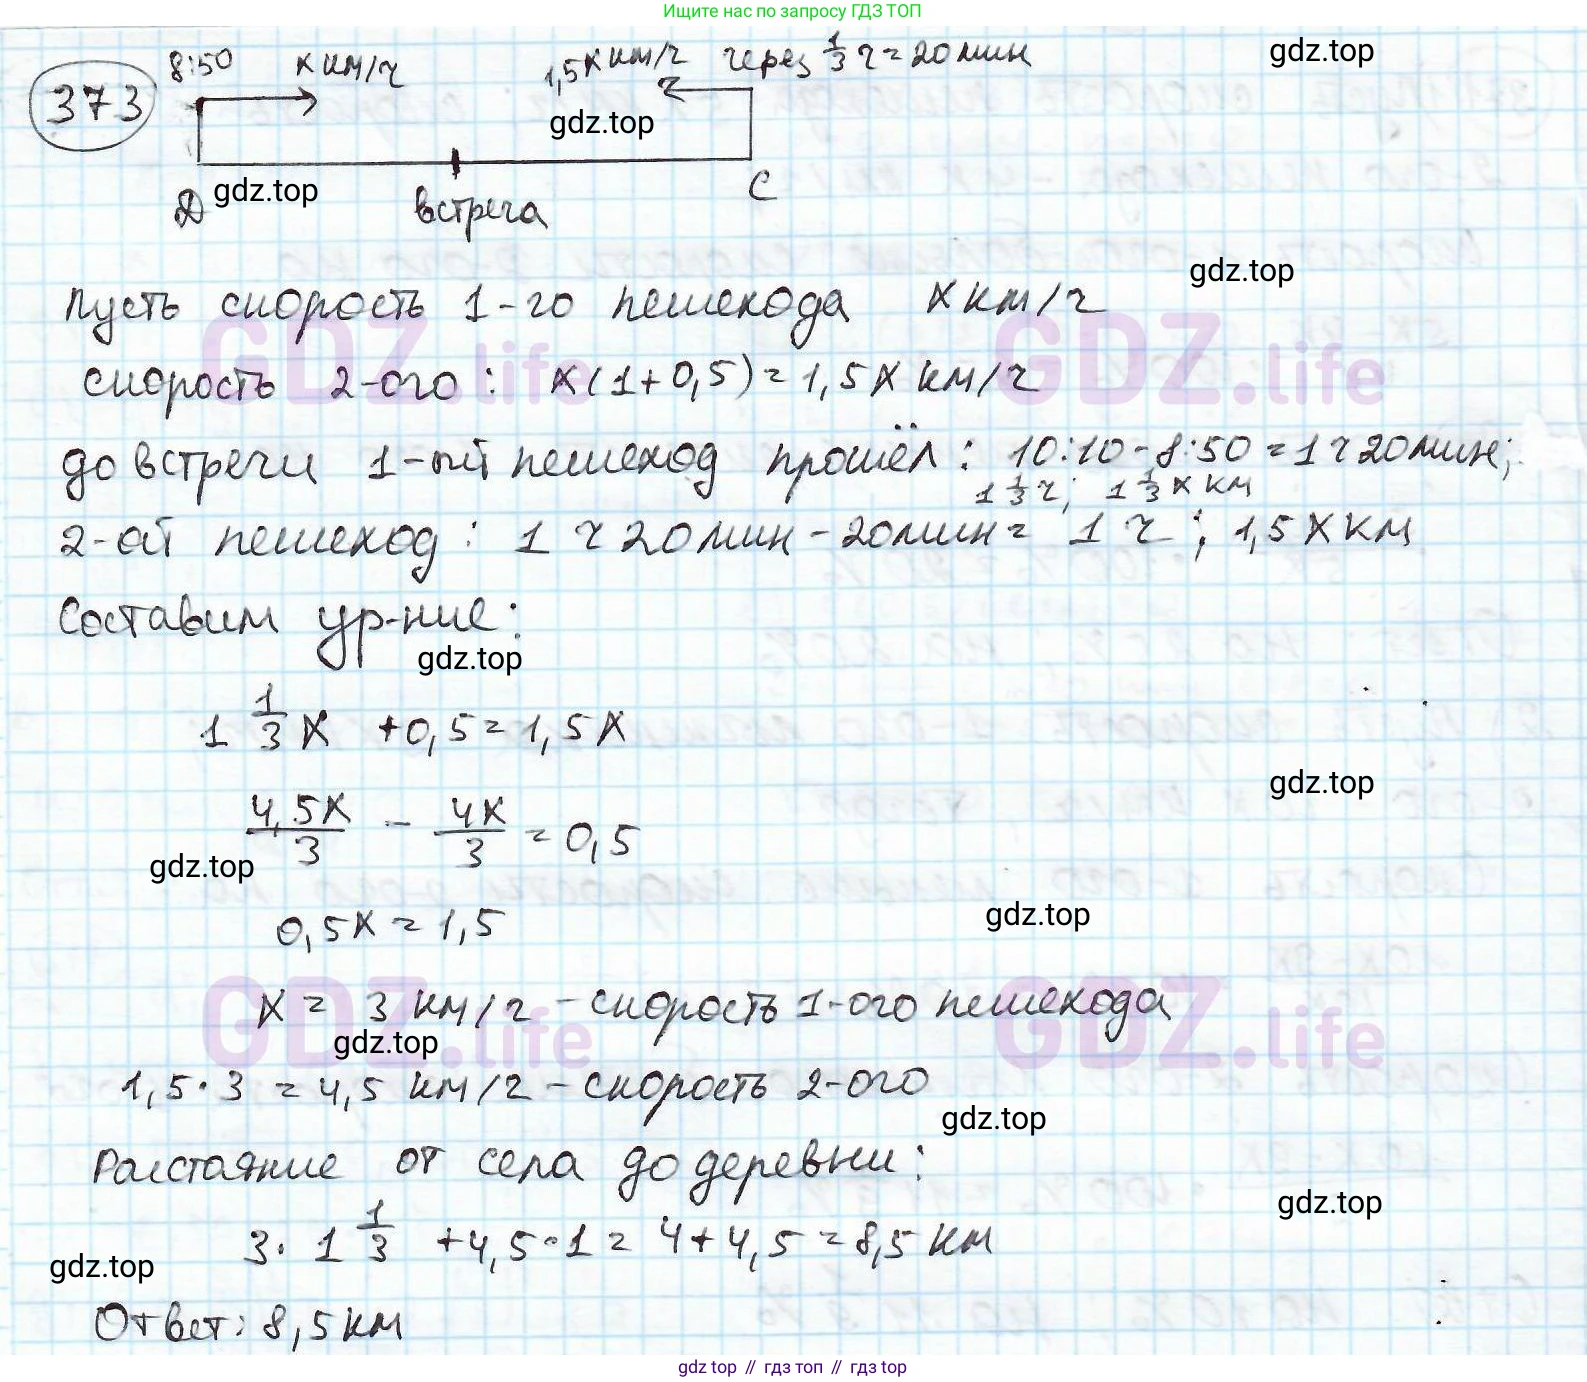 Ищите нас по запросу ГДЗ ТОП
373
8:50 x км/ч 1,5x км/ч через 1/3 ч = 20 мин
gdz.top
gdz.top
Д gdz.top встреча С
gdz.top
Пусть скорость 1-го пешехода x км/ч
GDZ.life GDZ.life
скорость 2-ого: x(1+0,5)=1,5x км/ч
до встречи 1-ый пешеход прошёл: 10:10-8:50=1ч 20 мин;
1 1/3 ч; 1 1/3 x км
2-ой пешеход: 1 ч 20 мин - 20 мин = 1 ч; 1,5x км
Составим ур-ние:
gdz.top
1 1/3 x + 0,5 = 1,5x
gdz.top
4,5x/3 - 4x/3 = 0,5
gdz.top
gdz.top
0,5x = 1,5
GDZ.life GDZ.life
x = 3 км/ч - скорость 1-ого пешехода
gdz.top
1,5·3 = 4,5 км/ч - скорость 2-ого
gdz.top
Расстояние от села до деревни:
gdz.top
3·1 1/3 + 4,5·1 = 4+4,5 = 8,5 км
gdz.top
Ответ: 8,5 км
gdz top // гдз топ // гдз top